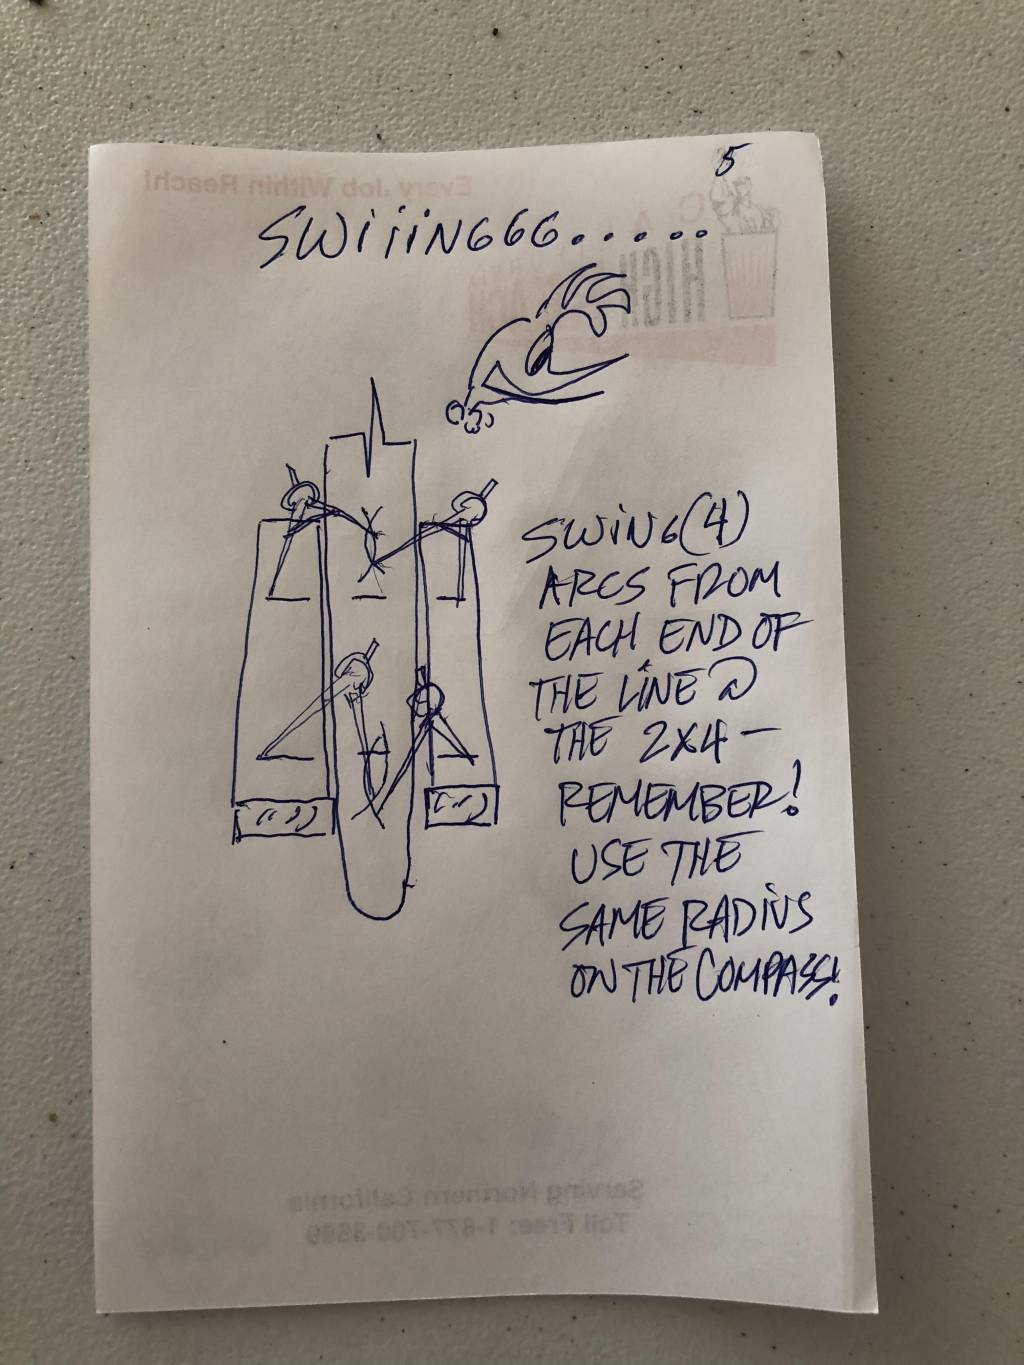 5
Every Job Within Reach!
SWiiiNGGG.....
HIGH REACH
SWiNG (4)
ARCS FROM
EACH END OF
THE LiNE @
THE 2X4 —
REMEMBER!
USE THE
SAME RADiUS
ON THE COMPASS!
Serving Northern California
Toll Free: 1-877-700-3699